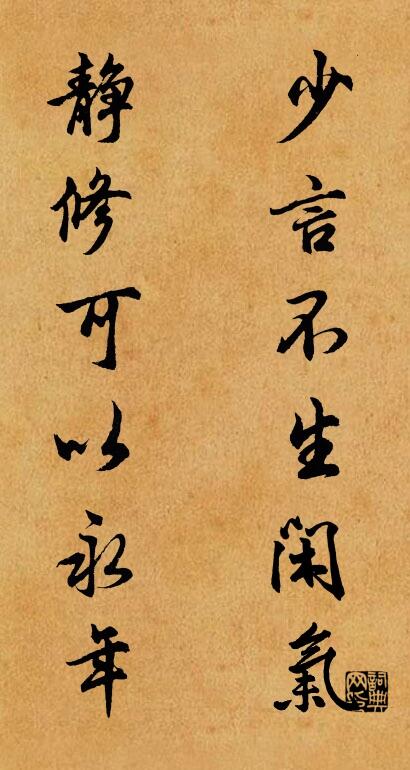 少言不生閑氣
静修可以永年